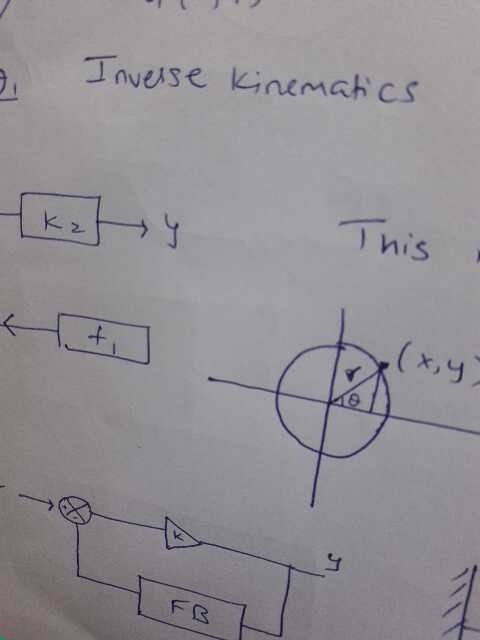 Inverse Kinematics
K2
y
This
f1
r
(x, y)
θ
K
y
FB